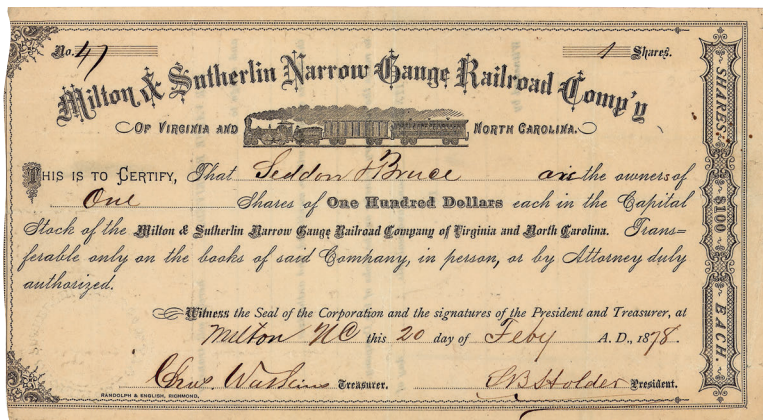 No. 47 1 Shares.
Milton & Sutherlin Narrow Gauge Railroad Comp'y
OF VIRGINIA AND NORTH CAROLINA.
THIS IS TO CERTIFY, That Seddon & Bruce are the owners of
One Shares of One Hundred Dollars each in the Capital
Stock of the Milton & Sutherlin Narrow Gauge Railroad Company of Virginia and North Carolina. Trans=
ferable only on the books of said Company, in person, or by Attorney duly
authorized.
Witness the Seal of the Corporation and the signatures of the President and Treasurer, at
Milton NC this 20 day of Feby A. D., 1878.
Chas. Watkins Treasurer. Holder President.
RANDOLPH & ENGLISH, RICHMOND.
SHARES $100 EACH.